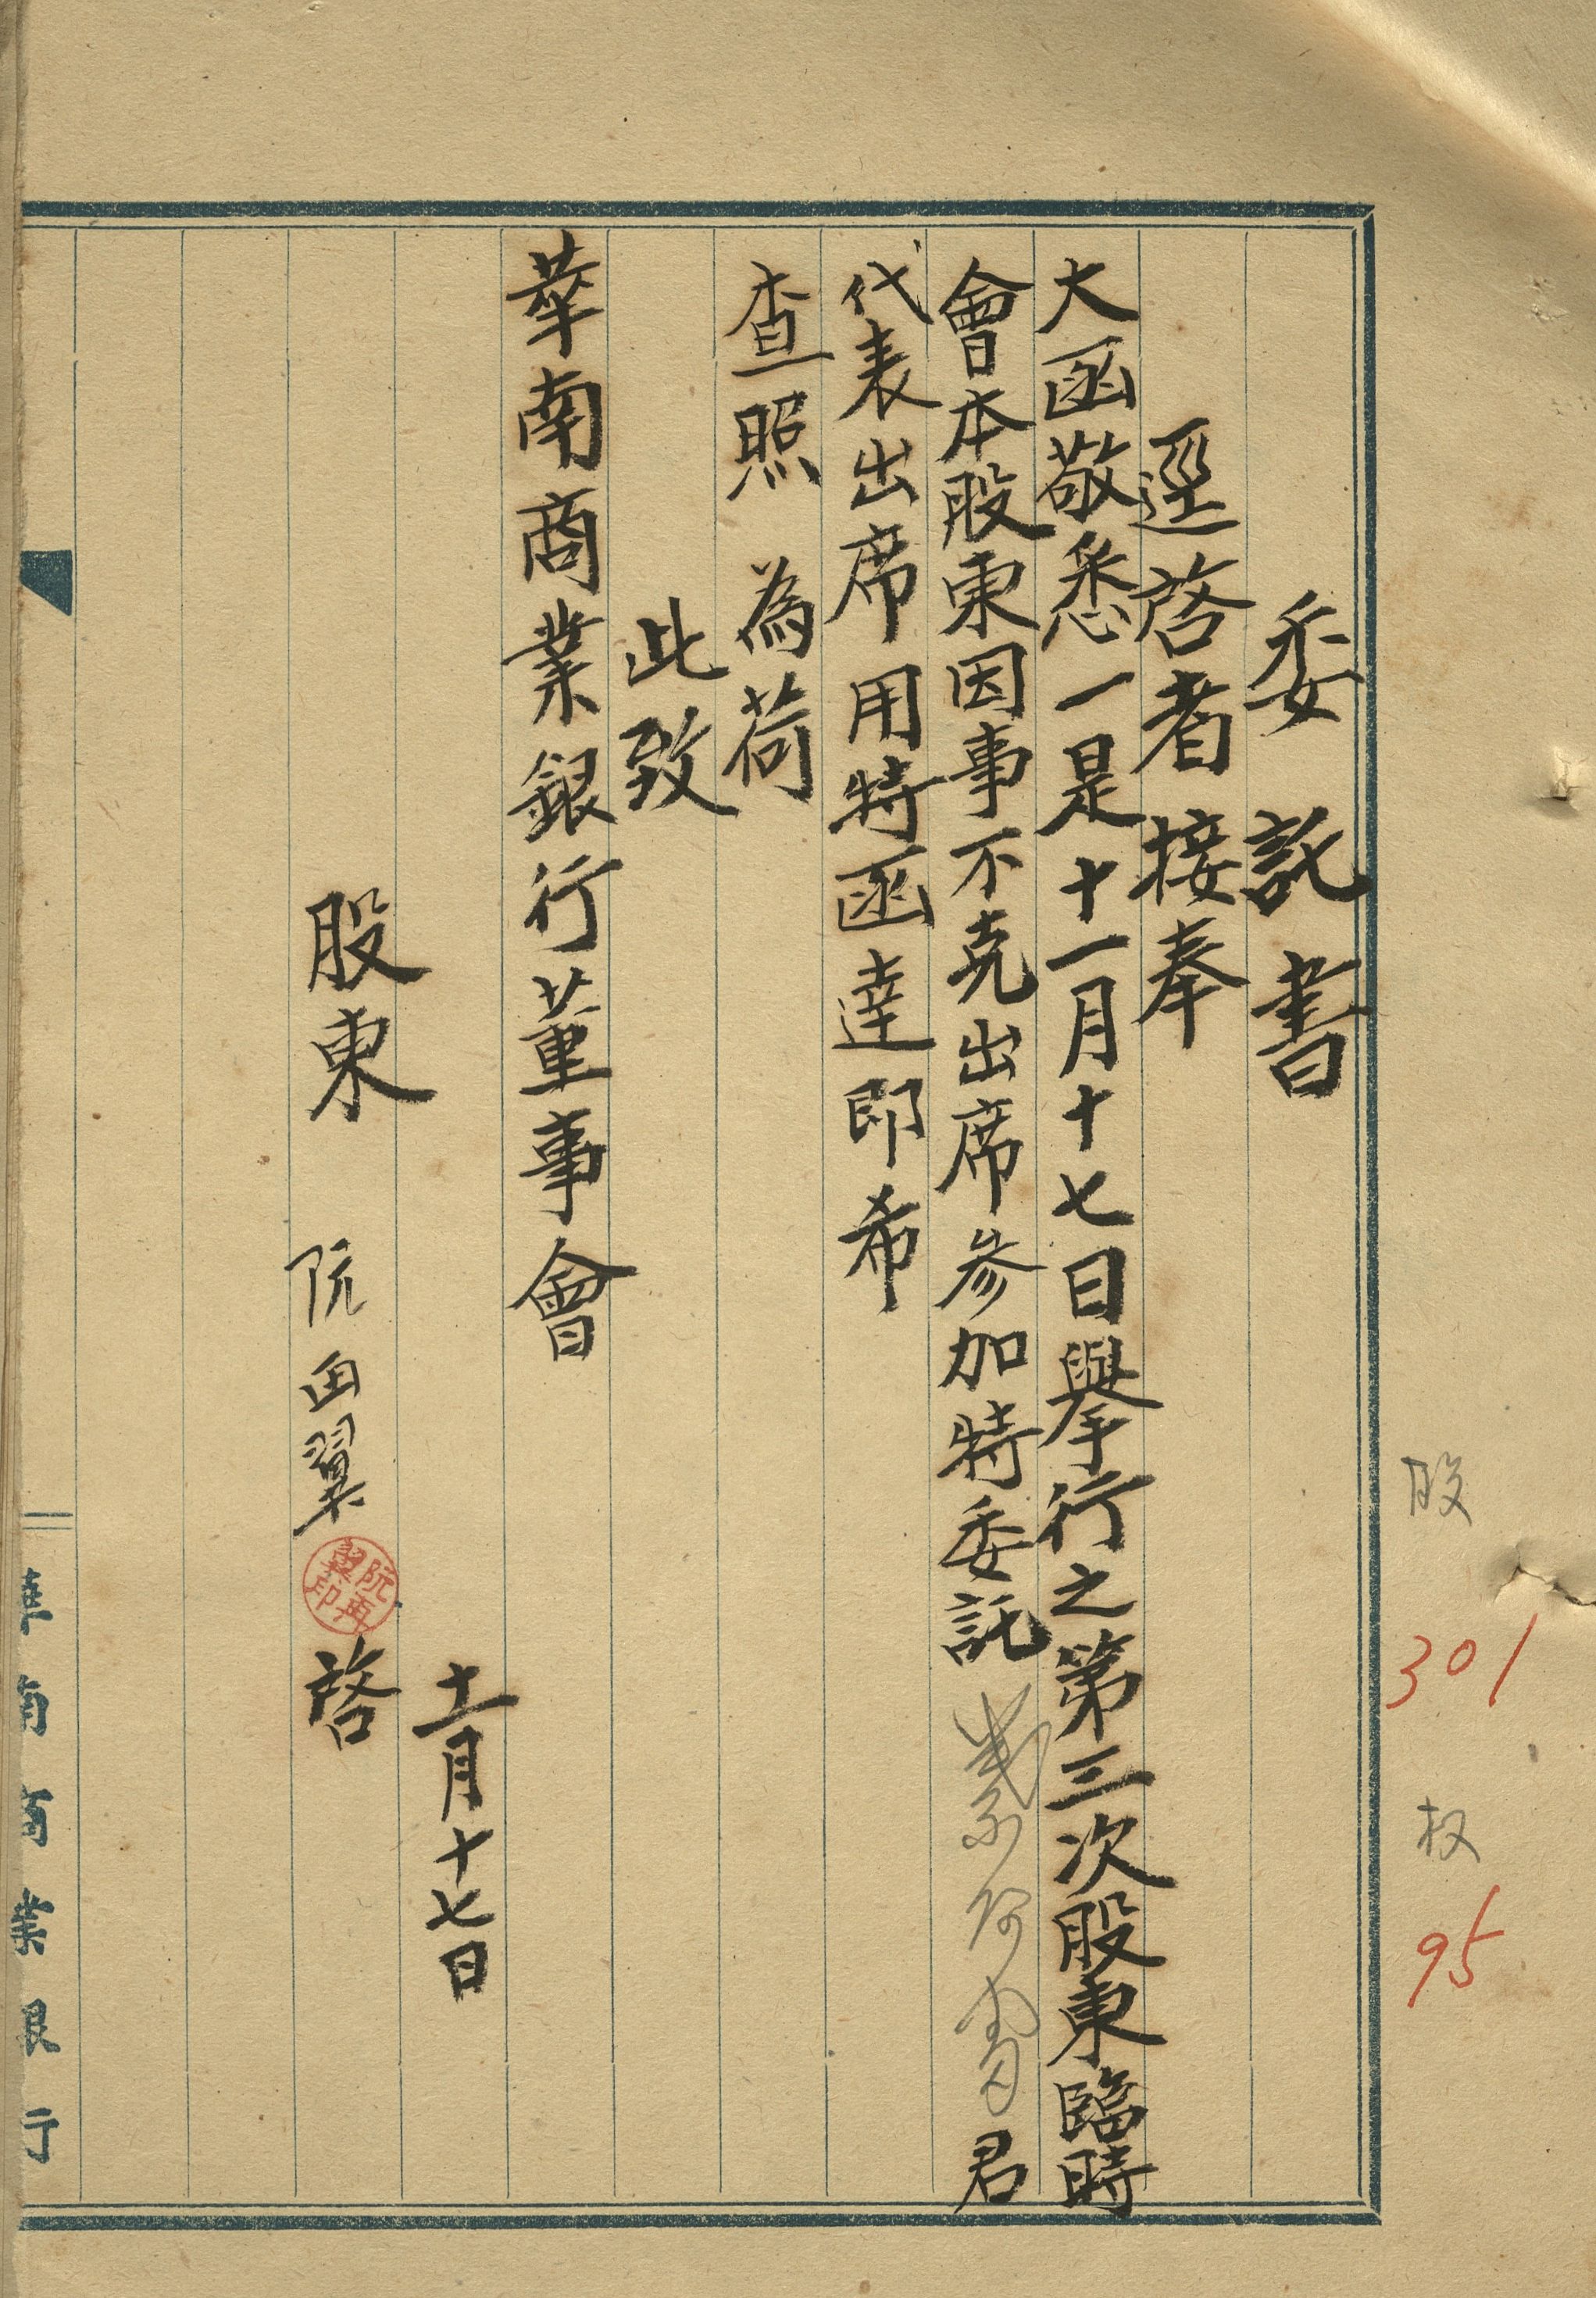 股 301 权 95
委託書
逕啓者接奉
大函敬悉一是十一月十七日舉行之第三次股東臨時
會本股東因事不克出席參加特委託 君
代表出席用特函達即希
查照 為荷
此致
華南商業銀行董事會
十一月十七日
股東 阮再翼 啓
阮再翼印
華南商業銀行